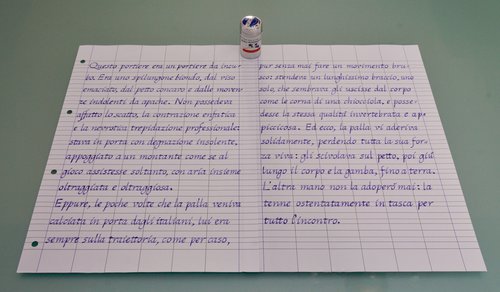 Questo portiere era un portiere da incu-
bo. Era uno spilungone biondo, dal viso
emaciato, dal petto concavo e dalle moven-
ze indolenti da apache. Non possedeva
affatto lo scatto, la contrazione enfatica
e la nevrotica trepidazione professionale:
stava in porta con degnazione insolente,
appoggiato a un montante come se al
gioco assistesse soltanto, con aria insieme
oltraggiata e oltraggiosa.
Eppure, le poche volte che la palla veniva
calciata in porta dagli italiani, lui era
sempre sulla traiettoria, come per caso,
pur senza mai fare un movimento bru-
sco: stendeva un lunghissimo braccio, uno
solo, che sembrava gli uscisse dal corpo
come le corna di una chiocciola, e posse-
desse la stessa qualità invertebrata e ap-
piccicosa. Ed ecco, la palla vi aderiva
solidamente, perdendo tutta la sua for-
za viva: gli scivolava sul petto, poi giù
lungo il corpo e la gamba, fino a terra.
L'altra mano non la adoperò mai: la
tenne ostentatamente in tasca per
tutto l'incontro.